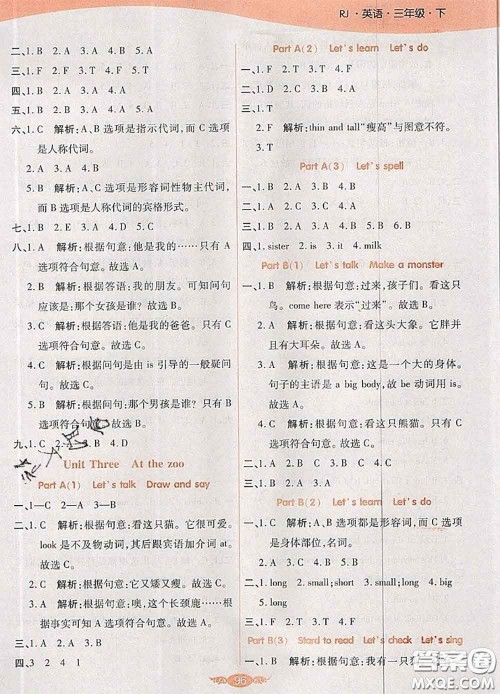 RJ·英语·三年级·下
三、1.B 2.A 3.A 4.A 5.B
四、1.B 2.C 3.A 4.B
五、1.B 2.B 3.B 4.A
六、1.C 解析:A、B选项是指示代词,而C选项
是人称代词。
2.A 3.A 4.B
5.B 解析:A、C选项是形容词性物主代词,
而B选项是人称代词的宾格形式。
七、1.B 2.C 3.D 4.A
八、1.A 解析:根据句意:他是我的……只有A
选项符合句意。故选A。
2.B 解析:根据答语:我的朋友。可知问句
应该是:那个女孩是谁?故选B。
3.C 解析:根据答语:他是我的爸爸。只有C
选项符合句意。故选C。
4.C 解析:根据问句是由is引导的一般疑问
句。故选C。
5.B 解析:根据问句:那个男孩是谁?只有B
选项符合句意。故选B。
九、1.C 2.A 3.B 4.D
Unit Three At the zoo
Part A(1) Let's talk Draw and say
一、1—C 2—A 3—B
二、1.C 解析:根据句意:看这只猫。它很可爱。
look是不及物动词,其后跟宾语加介词at。
故选C。
2.A 解析:根据句意:它又矮又瘦。故选A。
3.A 解析:根据句意:噢,这个长颈鹿……根
据事实可知A选项符合句意。故选A。
三、1.C 2.A 3.B 4.D
四、3 2 4 1
Part A(2) Let's learn Let's do
一、1.F 2.T 3.T 4.F
二、1.C 2.A 3.B 4.D
三、1.T
2.F 解析:thin and tall“瘦高”与图意不符。
Part A(3) Let's spell
一、1.B 2.A 3.C 4.A
二、1.A 2.C 3.B
三、1.A 2.B 3.A 4.B
四、1.sister 2.is 3.it 4.milk
Part B(1) Let's talk Make a monster
一、1.B 解析:根据句意:过来,孩子们。看这只
鸟。come here 表示“过来”。故选B。
2.C 解析:根据句意:看这头大象。它胖并
且有大耳朵。故选C。
3.A 解析:根据句意:这是一个大的身体。
句子的主语是 a big body,故 be 动词用 is。
故选A。
4.C 解析:根据句意:看这只熊猫。只有C
选项符合句意。故选C。
二、1.C 2.A 3.D 4.B
Part B(2) Let's learn Let's do
一、1.C 解析:A、B选项都是形容词,而C选项
是身体部位,名词。
2.A 3.A 4.C
二、1.long 2.small;short 3.long
4.big;small 5.long
三、1.D 2.C 3.A 4.B
Part B(3) Start to read Let's check Let's sing
一、1.B 2.A 3.A
96
答案圈
MXQE.COM